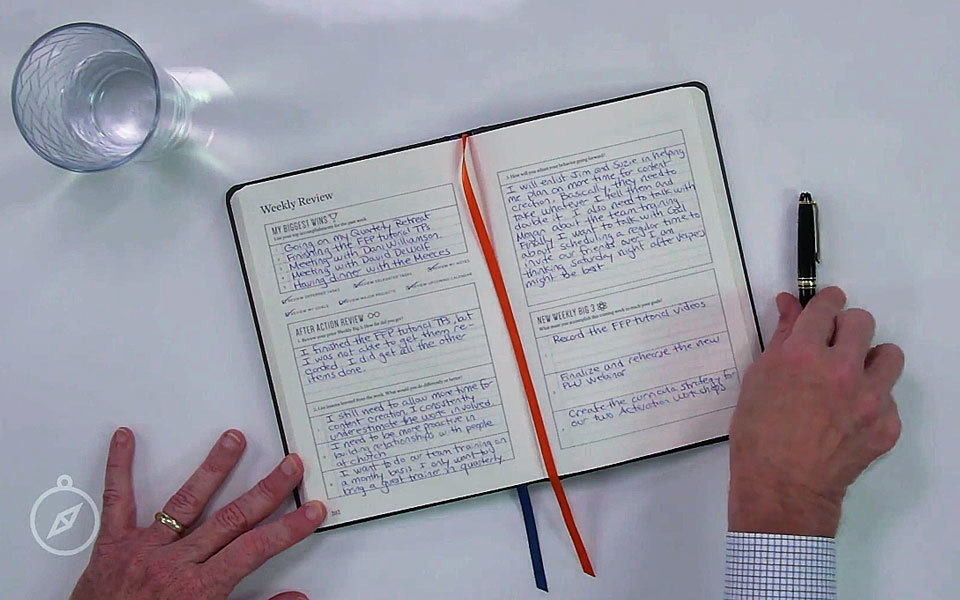 Weekly Review
MY BIGGEST WINS
List your top accomplishments for the past week
Going on my Quarterly Retreat
Finishing the FFP tutorial TPs
Meetings with Don Williamson
Meeting with David DeWolf
Having dinner with the Meeces
REVIEW DEFERRED TASKS
REVIEW DELEGATED TASKS
REVIEW MY NOTES
REVIEW MY GOALS
REVIEW MAJOR PROJECTS
REVIEW UPCOMING CALENDAR
AFTER ACTION REVIEW
1. Review your prior Weekly Big 3. How far did you get?
I finished the FFP tutorial TPs, but
I was not able to get them re-
corded. I did get all the other
items done.
2. List lessons learned from the week. What would you do differently or better?
I still need to allow more time for
content creation. I consistently
underestimate the work involved
I need to be more proactive in
building relationships with people
at church
I want to do our team training on
a monthly basis. I only want to
bring a guest trainer in quarterly.
202
3. How will you adjust your behavior going forward?
I will enlist Jim and Suzie in helping
me plan on more time for content
creation. Basically, they need to
take whatever I tell them and
double it. I also need to talk with
Megan about the team training
Finally, I want to talk with Gail
about scheduling a regular time to
invite our friends over. I am
thinking Saturday night after Vespers
might be best.
NEW WEEKLY BIG 3
What must you accomplish this coming week to reach your goals?
Record the FFP tutorial videos
Finalize and rehearse the new
PLW webinar
Create the curricula strategy for
our two Activation Workshops